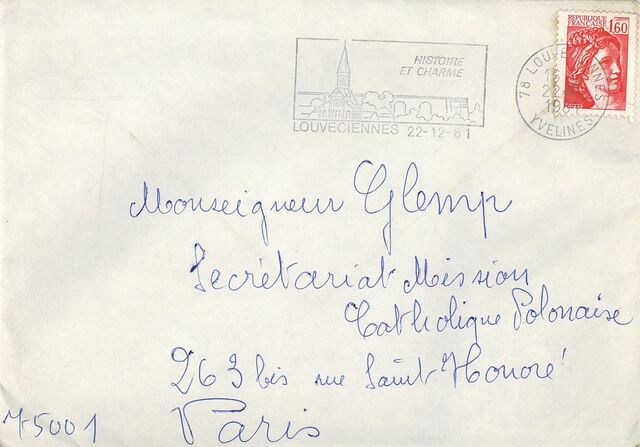 HISTOIRE
ET CHARME
LOUVECIENNES 22-12-81
REPUBLIQUE
FRANÇAISE
1,60
78 LOUVECIENNES
YVELINES
Monseigneur Glemp
Secrétariat Mission
Catholique Polonaise
263 bis rue Saint-Honoré
75001 Paris